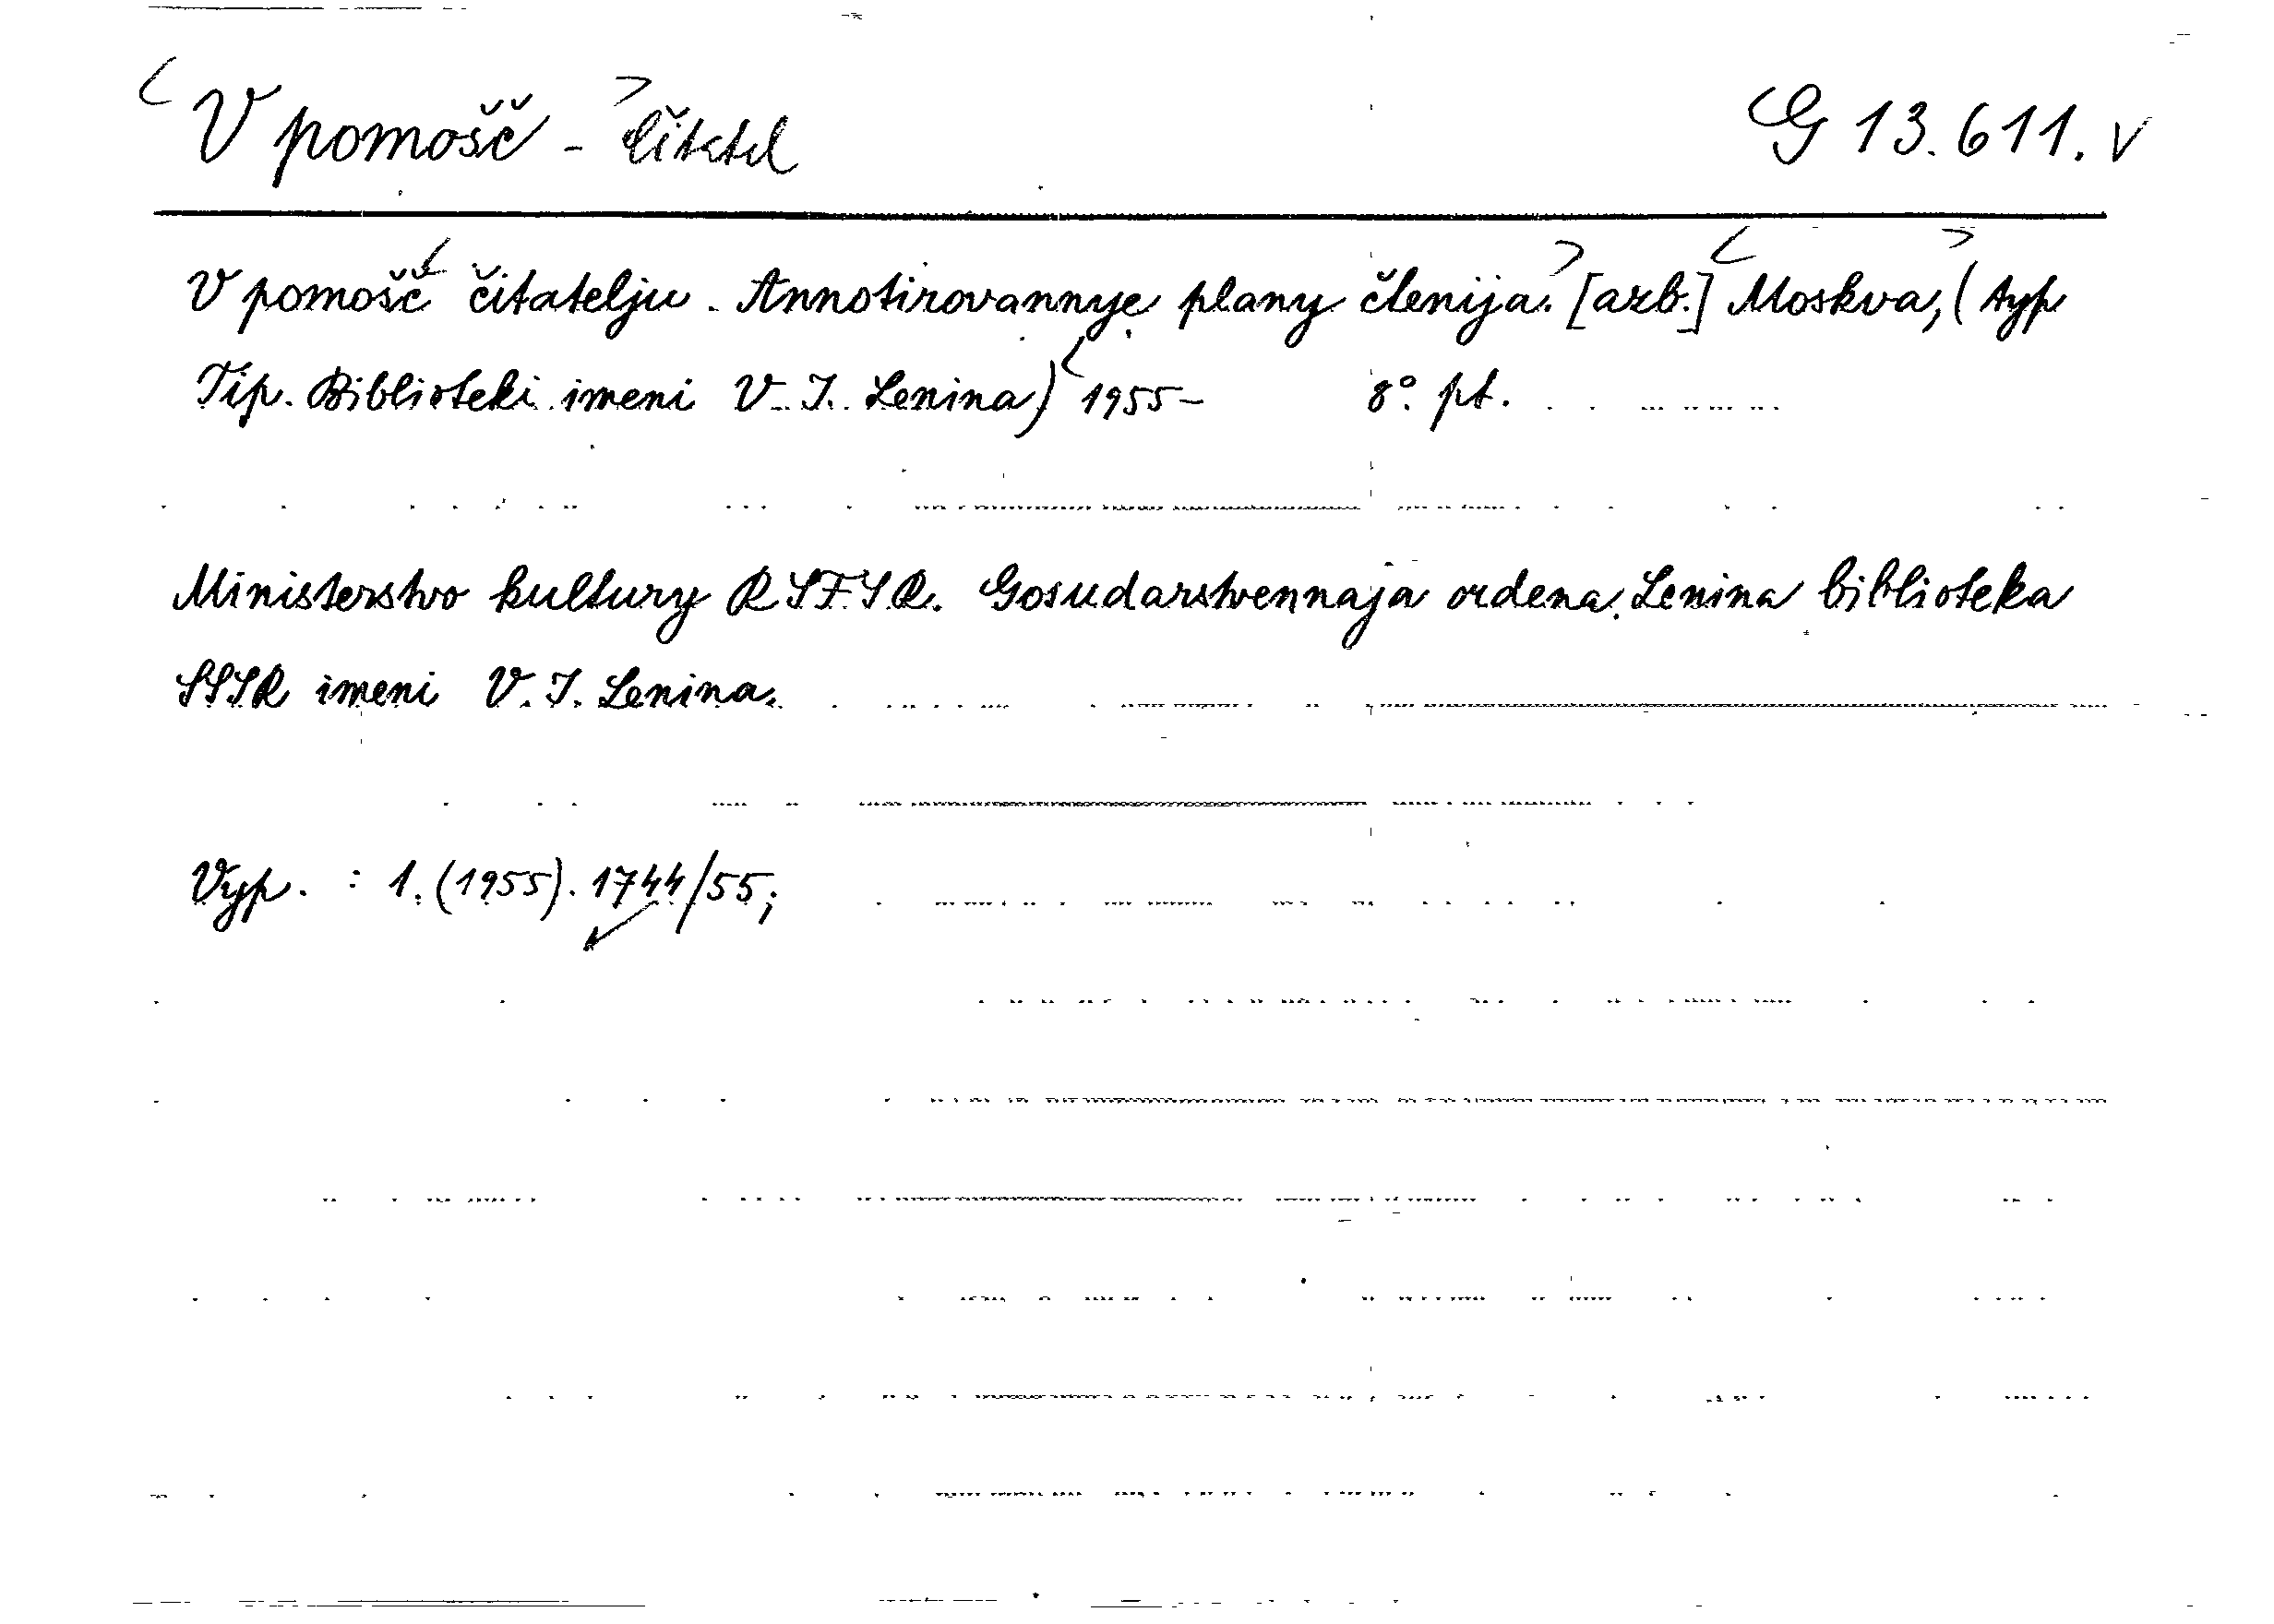 V pomošč - čitatel G 13.611. v
V pomošč čitatelju. Annotirovannye plany čtenija. [azb.] Moskva, (typ
Tip. Biblioteki imeni V. I. Lenina) 1955- 8° pt.
Ministerstvo kultury RSFSR. Gosudarstvennaja ordena Lenina biblioteka
SSSR imeni V. I. Lenina.
Vyp. : 1. (1955). 1744/55;